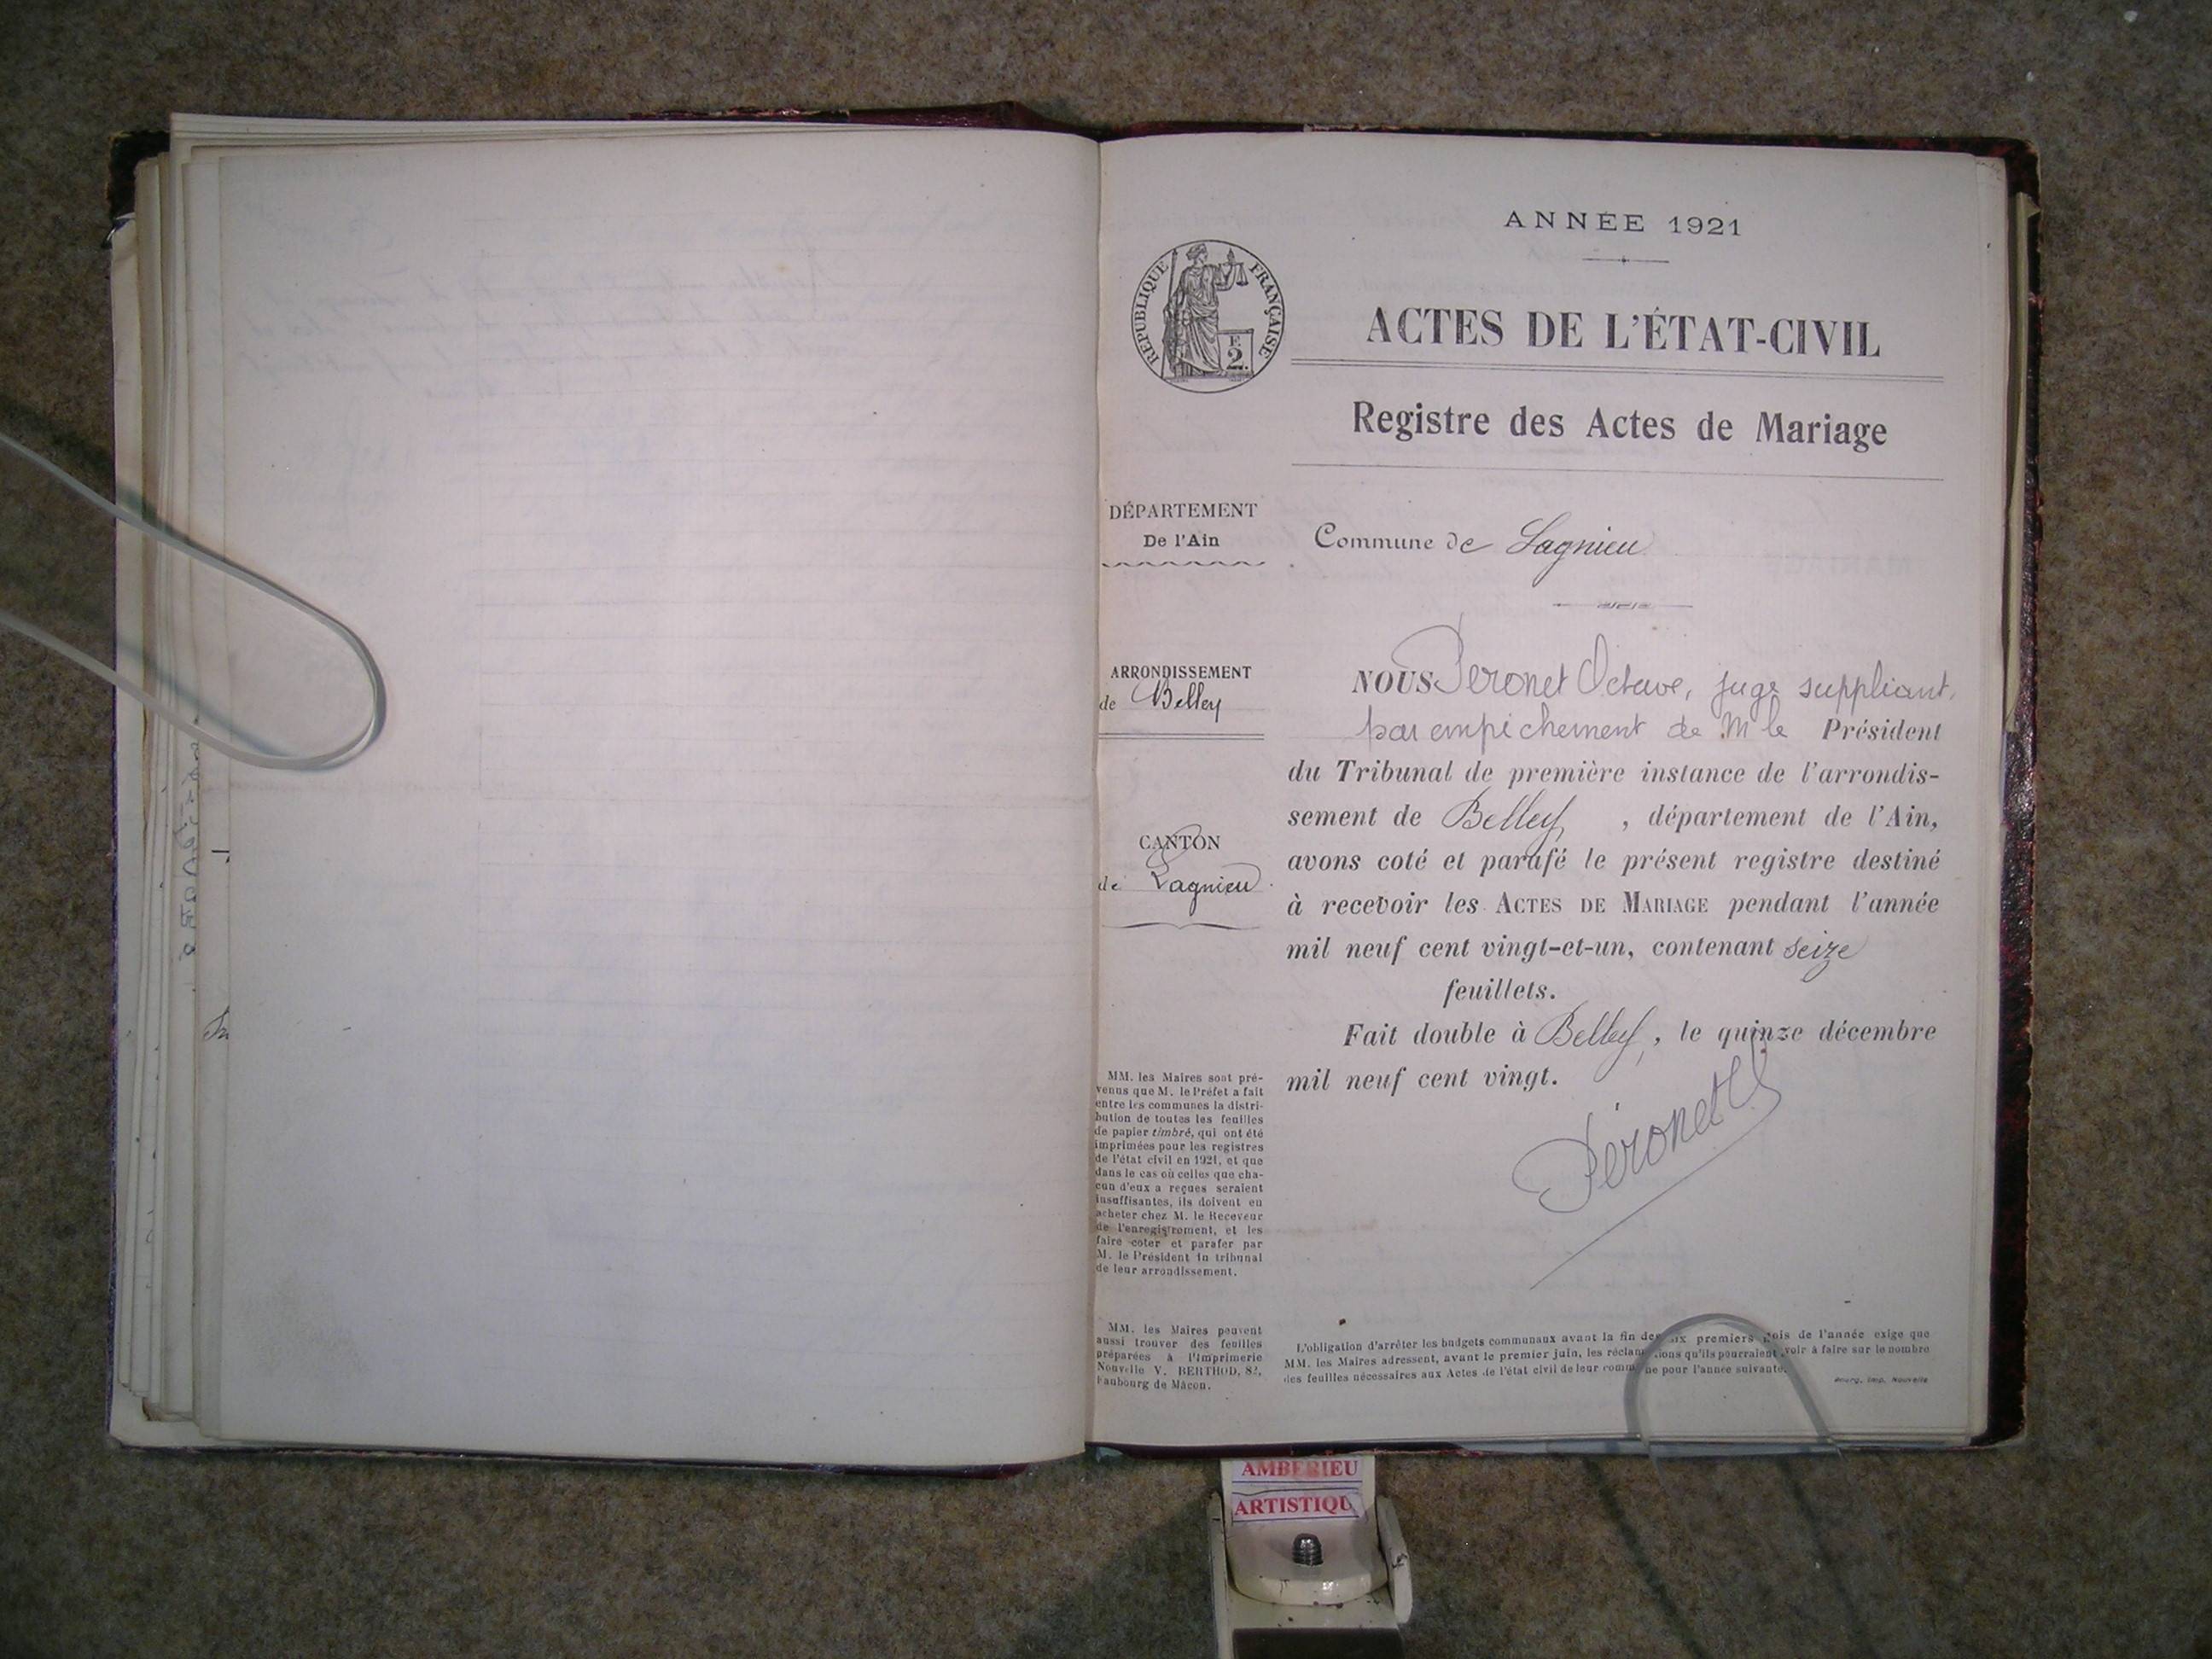 ANNÉE 1921
RÉPUBLIQUE FRANÇAISE
E.
2.
ACTES DE L'ÉTAT-CIVIL
Registre des Actes de Mariage
DÉPARTEMENT
De l'Ain
Commune de Lagnieu
ARRONDISSEMENT
de Belley
CANTON
de Lagnieu
NOUS Peronet Octave, juge suppliant,
par empêchement de M le Président
du Tribunal de première instance de l'arrondis-
sement de Belley, département de l'Ain,
avons coté et parafé le présent registre destiné
à recevoir les ACTES DE MARIAGE pendant l'année
mil neuf cent vingt-et-un, contenant seize
feuillets.
Fait double à Belley, le quinze décembre
mil neuf cent vingt.
Péronet
MM. les Maires sont pré-
venus que M. le Préfet a fait
entre les communes la distri-
bution de toutes les feuilles
de papier timbré, qui ont été
imprimées pour les registres
de l'état civil en 1921, et que
dans le cas où celles que cha-
cun d'eux a reçues seraient
insuffisantes, ils doivent en
acheter chez M. le Receveur
de l'enregistrement, et les
faire coter et parafer par
M. le Président du tribunal
de leur arrondissement.
MM. les Maires peuvent
aussi trouver des feuilles
préparées à l'Imprimerie
Nouvelle V. BERTHOD, 82,
Faubourg de Mâcon.
L'obligation d'arrêter les budgets communaux avant la fin des six premiers mois de l'année exige que
MM. les Maires adressent, avant le premier juin, les réclamations qu'ils pourraient avoir à faire sur le nombre
des feuilles nécessaires aux Actes de l'état civil de leur commune pour l'année suivante.
Bourg, Imp. Nouvelle
AMBERIEU
ARTISTIQU